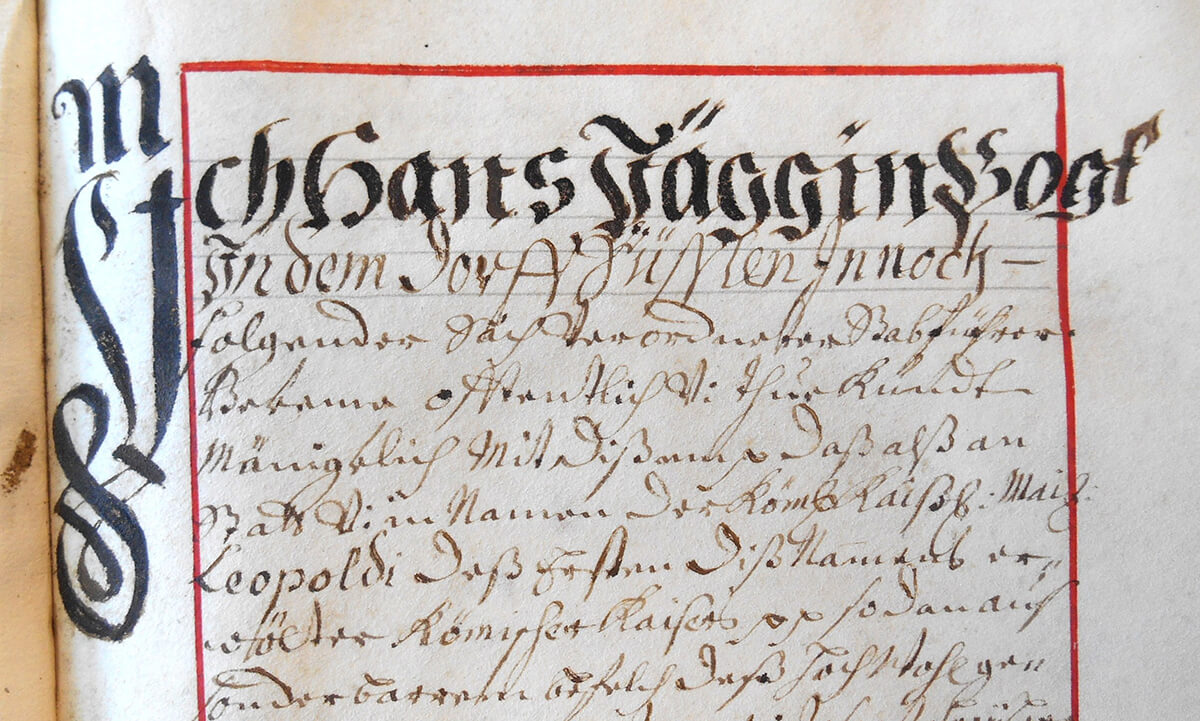 Ich Hans Näggin Vogt
In dem Dorff Füsslen In noch –
folgender Sach Verordneter Stabführer
Bekene offentlich Vi thue Kundt
Mänigelich Mit dißem p daß alß an
Statt Vi in Namen der Röm Kaißl: Maiꝫ:
Leopoldi deß Ersten diß Namens er-
wölter Römischer Kaisers pp so dan auß
sonderbarrem befelch deß Hoch Wohlge-